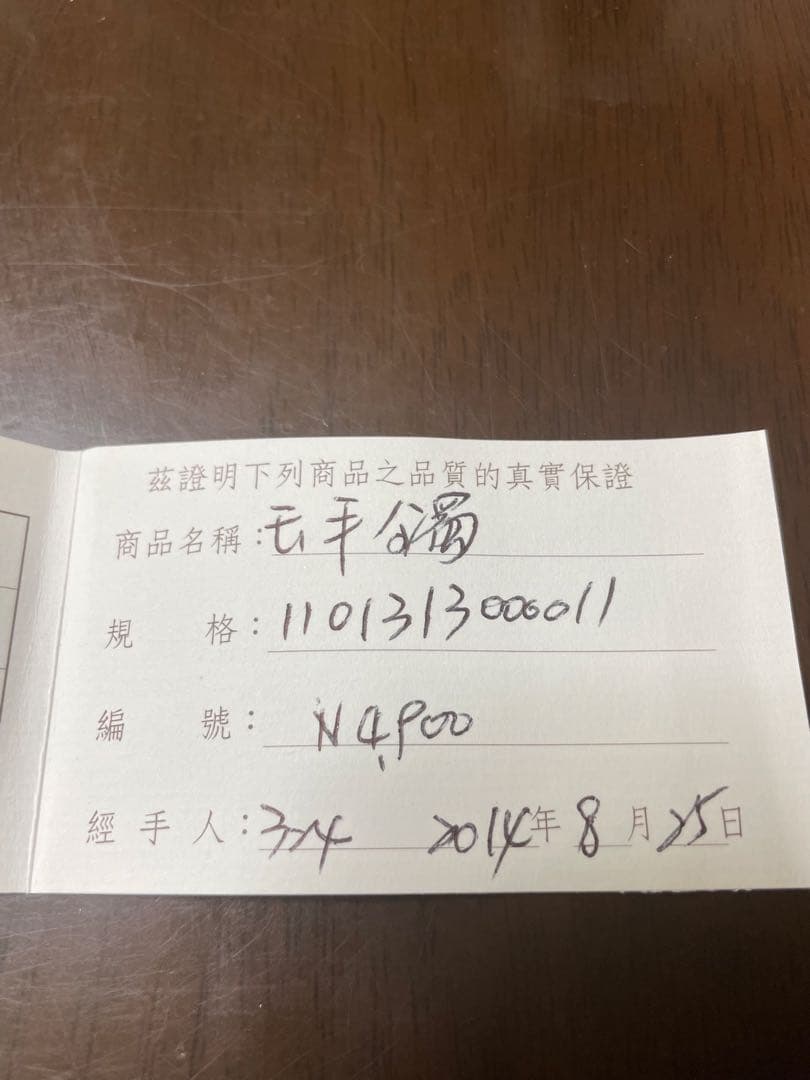 茲證明下列商品之品質的真實保證
商品名稱:玉手鐲
規 格:1101313000011
編 號:N4,900
經手人:324 2014年8月25日